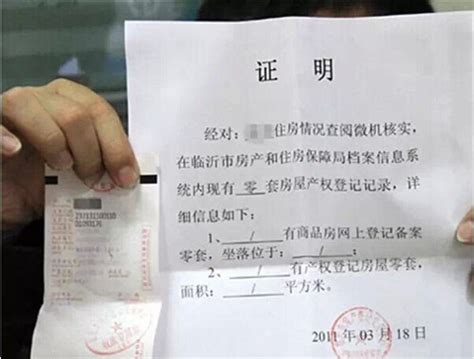 证 明
经对: 住房情况查阅微机核实,
在临沂市房产和住房保障局档案信息
系统内现有 零 套房屋产权登记记录, 详
细信息如下:
1、 / 有商品房网上登记备案
零套, 坐落位于: / ;
2、 / 有产权登记房屋零套,
面积: / 平方米。
2011 年 03 月 18 日